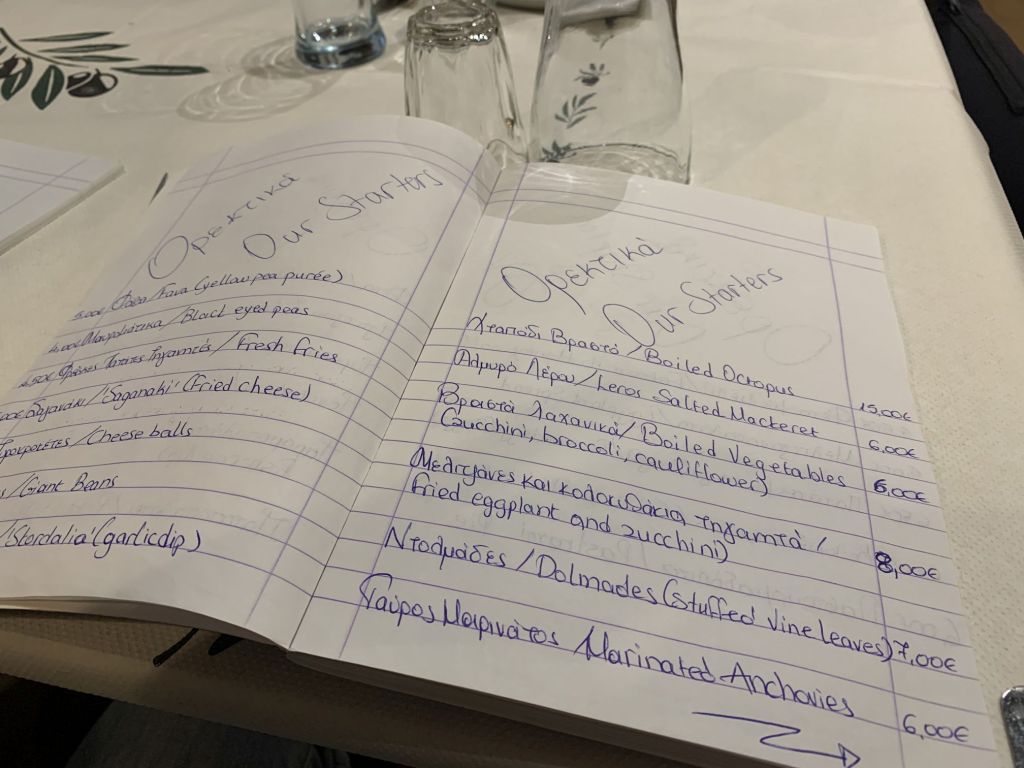 Ορεκτικά
Our Starters
5,00€ Φάβα/Fava (yellow pea purée)
Μαυρομάτικα/Black eyed peas
Φρέσκες Πατάτες Τηγανητές/Fresh fries
Σαγανάκι/'Saganaki' (Fried cheese)
/Cheese balls
/Giant Beans
/'Skordalia' (garlic dip)
Ορεκτικά
Our Starters
Χταπόδι Βραστό/Boiled Octopus 15,00€
Αλμυρό Λέρου/Leros Salted Mackerel 6,00€
Βραστά λαχανικά/Boiled Vegetables 6,00€
(zucchini, broccoli, cauliflower)
Μελιτζάνες και κολοκυθάκια τηγανητά/
Fried eggplant and zucchini) 8,00€
Ντολμάδες/Dolmades (stuffed vine leaves) 7,00€
Γαύρος Μαρινάτος Marinated Anchovies 6,00€